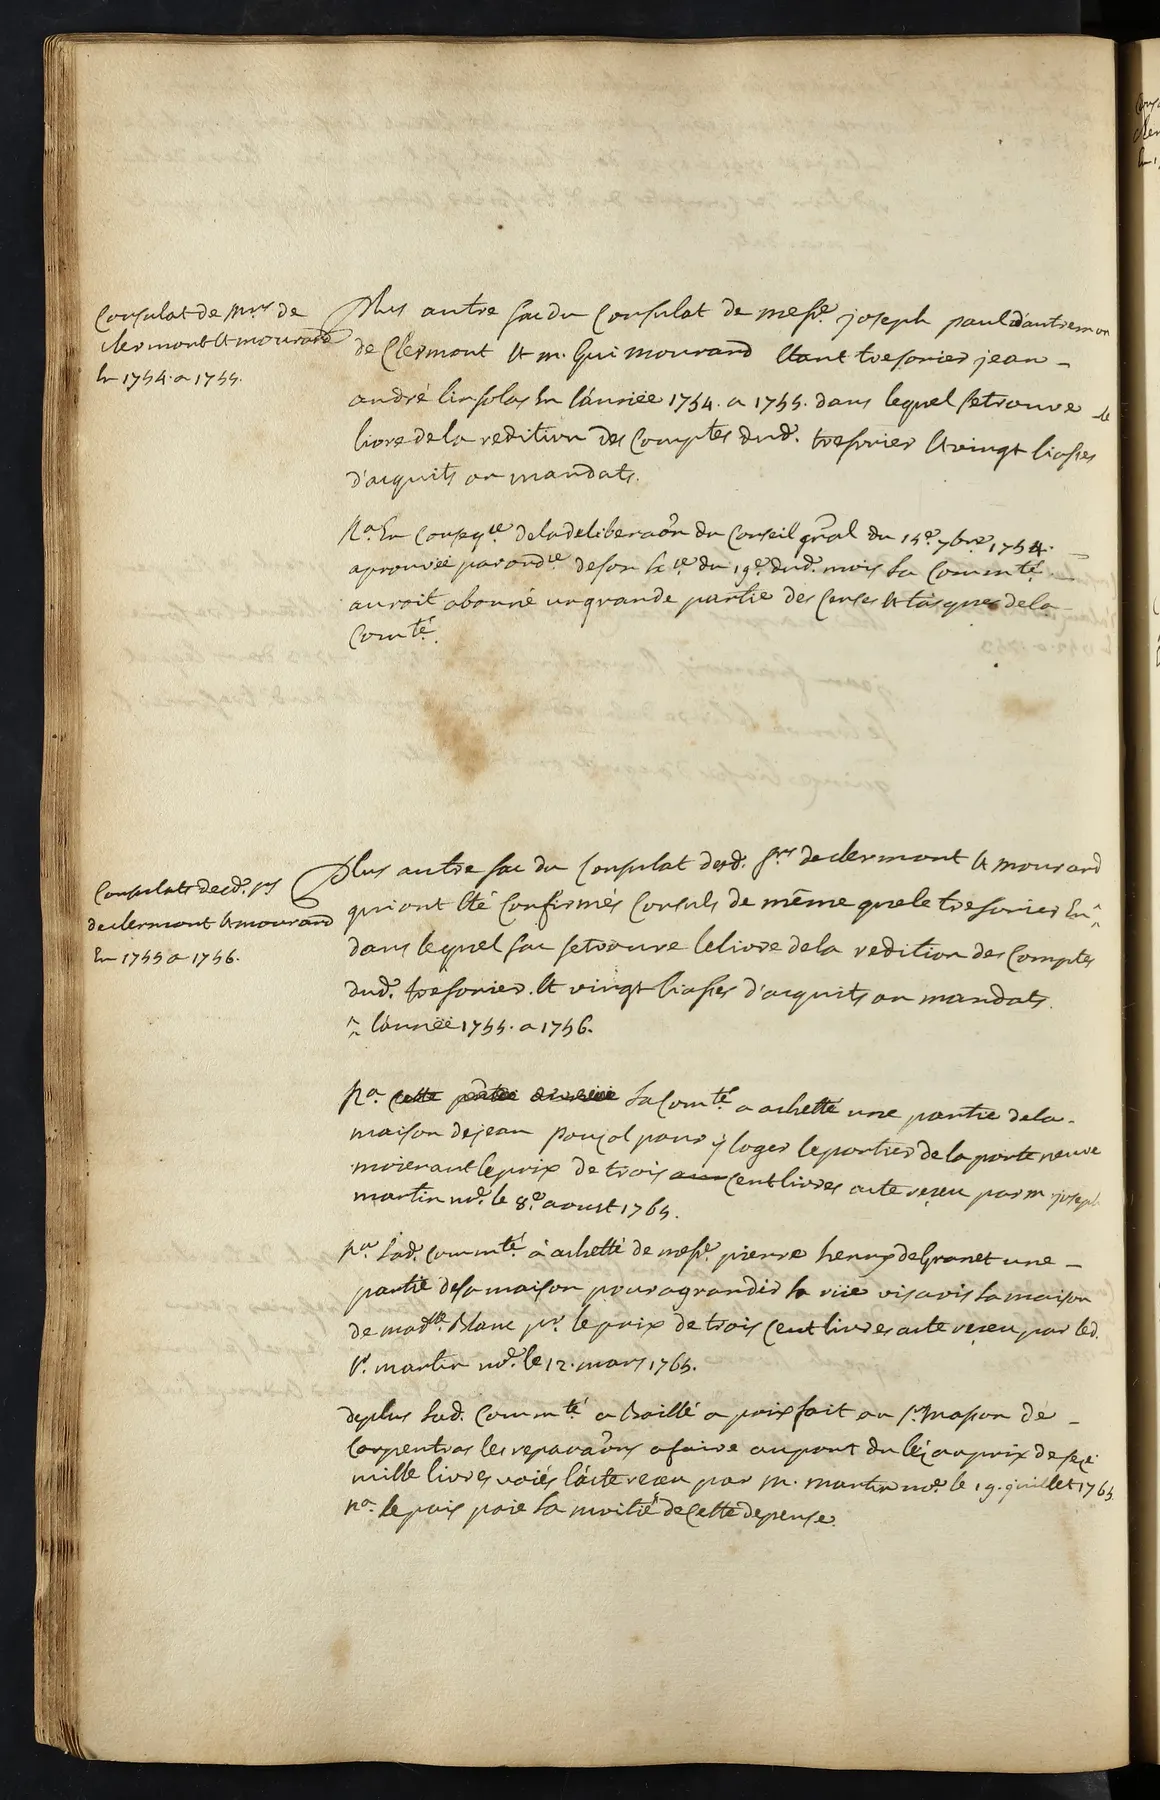 Consulat de Mrs de
clermont et mourard
En 1754. a 1755.
Plus autre sac du Consulat de messe. joseph paul d'antremon
de Clermont et m. Gui mourard etant tresorier jean
andré linsolas En l'année 1754. a 1755. dans lequel se trouve le
livre de la redition des Comptes dud. tresorier et vingt liasses
d'acquits ou mandats.
Na. En conseqce. de la deliberaon du Conseil gñal du 15e. 7bre. 1754.
aprouvée par ordce. de son Exce. du 19e. dud. mois la Commté.
auroit abonné un grande partie des Censes et tasques de la
Comté.
Consulat desd. srs
de clermont et mourard
En 1755 a 1756.
Plus autre sac du Consulat desd. srs de clermont et mourard
qui ont été Confirmés Consuls de même que le tresorier En ^
dans lequel sac se trouve le livre de la redition des Comptes
dud. tresorier. et vingt liasses d'acquits ou mandats.
^ l'année 1755. a 1756.
Na. cette la Comté. a achetté une partie de la
maison de jean poujol pour y loger le portier de la porte neuve
moienant le prix de trois cent livres acte reçeu par m. joseph
martin nre. le 8e. aoust 1765.
Na. lad. Commté. à achetté de messe. pierre henry de Granet une
partie de sa maison pour agrandir la rüe vis avis la maison
de madlle. Blanc pr. le prix de trois cent livres acte reçeu par led.
sr. martin nre. le 12. mars 1765.
de plus lad. Commté. a Baillé a prix fait au sr. mason de
Carpentras les reparaons a faire au pont du léz au prix de
mille livres voiés l'acte reçeu par M. martin nre. le 19. juillet 1765.
Na. le païs paie la moitié de Cette depense.